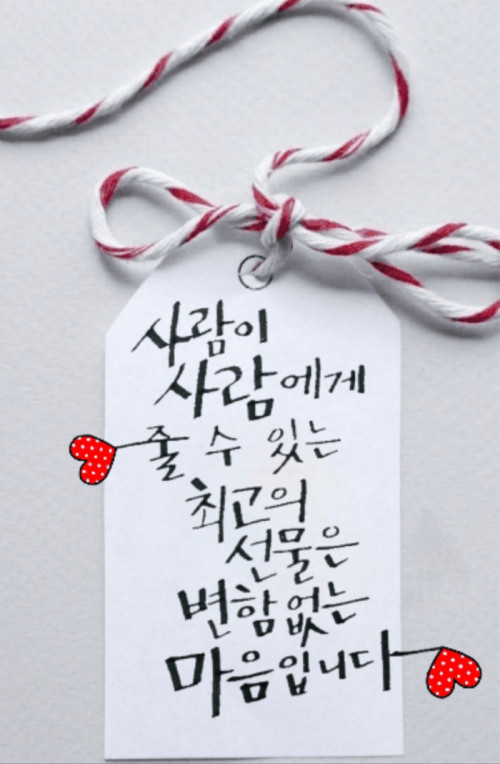 사람이
사람에게
줄 수 있는
최고의
선물은
변함없는
마음입니다